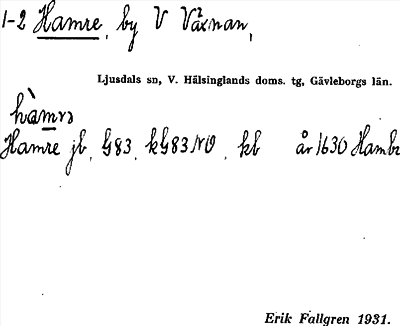 1-2 Hamre, by V Växnan,
Ljusdals sn, V. Hälsinglands doms. tg, Gävleborgs län.
hàmrə
Hamre jb, G83, kG83NO, kb år 1630 Hambr
Erik Fallgren 1931.